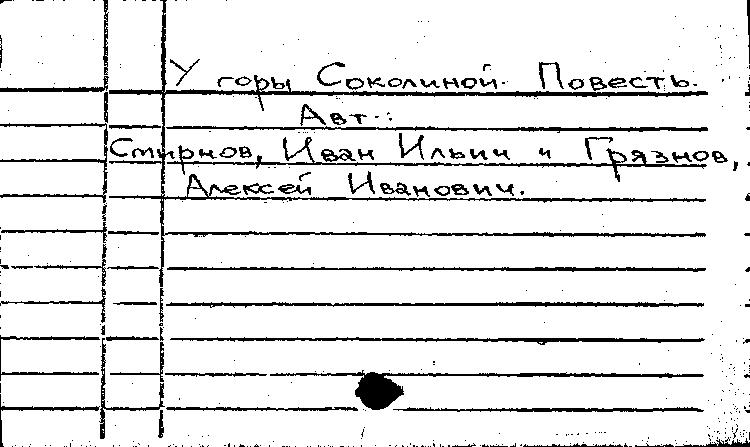 У горы Соколиной. Повесть.
Авт.:
Смирнов, Иван Ильич и Грязнов,
Алексей Иванович.